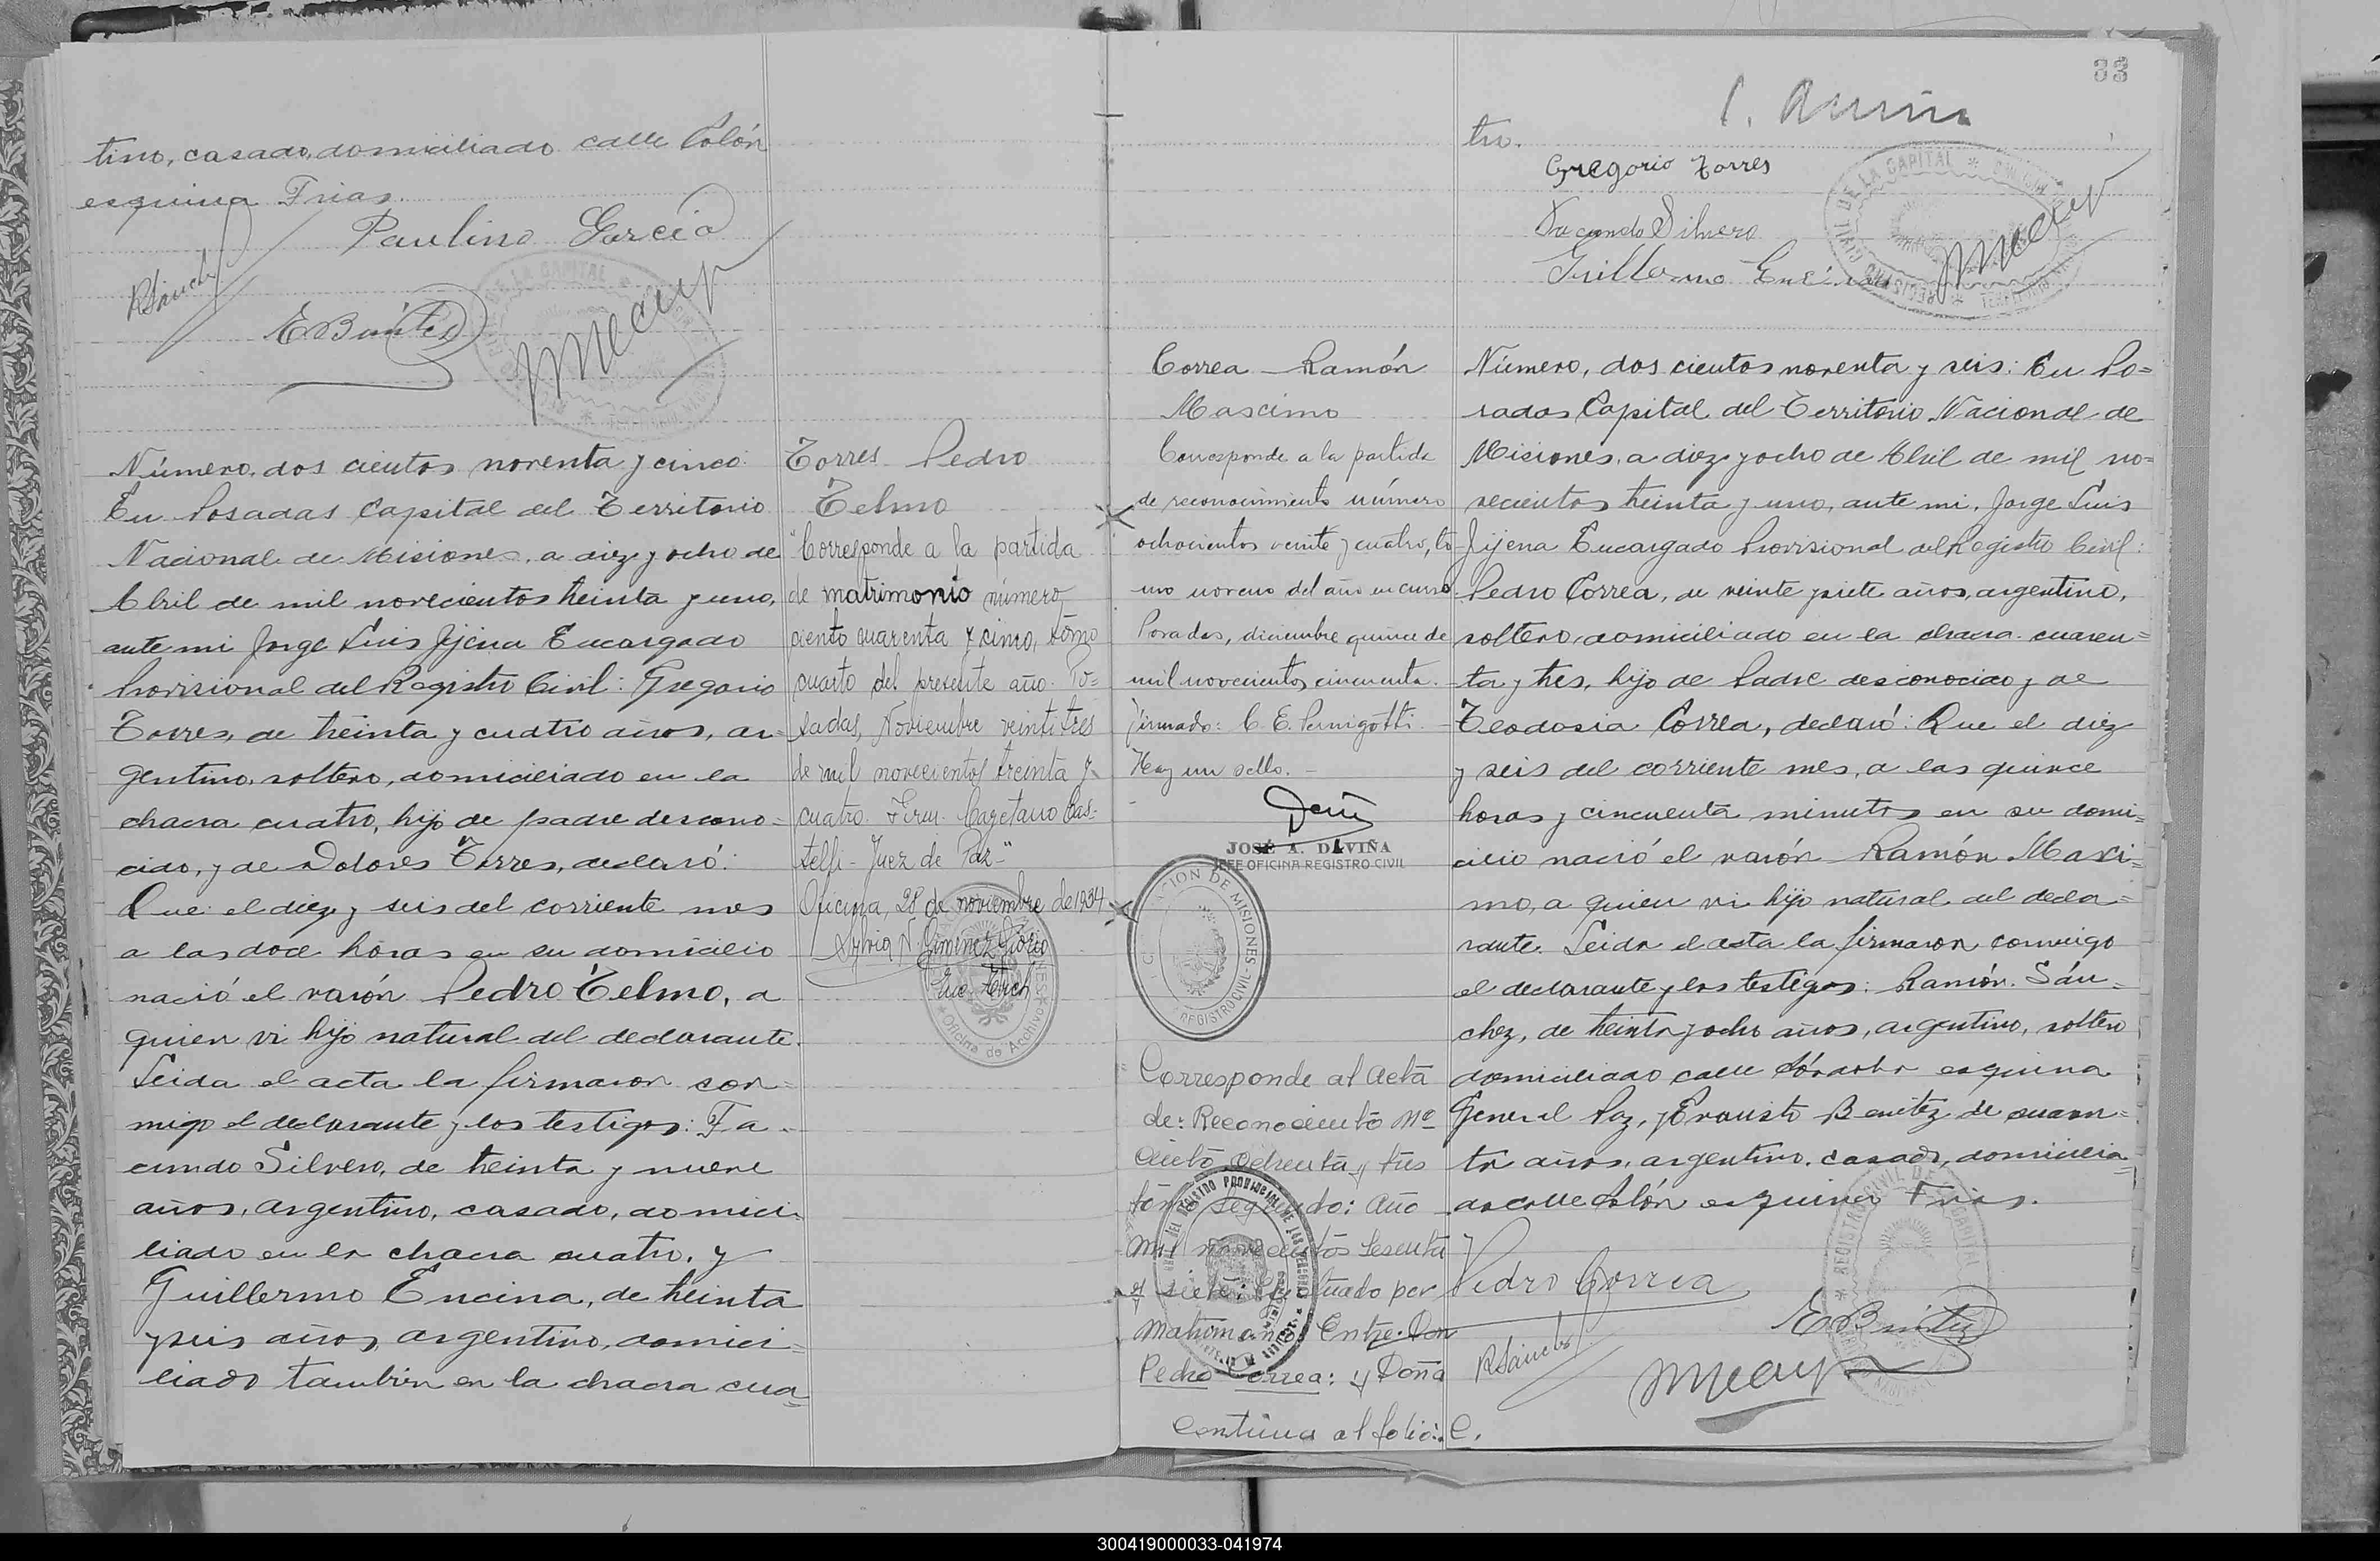 tino, casado, domiciliado calle Colón
esquina Frias.
Paulino García
RSánchez
EBenítez
Número, dos cientos noventa y cinco:
En Posadas Capital del Territorio
Nacional de Misiones, a diez y ocho de
Abril de mil novecientos treinta y uno,
ante mi Jorge Luis Jijena Encargado
Provisional del Registro Civil: Gregorio
Torres, de treinta y cuatro años, ar-
gentino, soltero, domiciliado en la
chacra cuatro, hijo de padre descono-
cido, y de Dolores Torres, declaró:
Que: el diez y seis del corriente mes
a las doce horas en su domicilio
nació el varón Pedro Telmo, a
quien vi hijo natural del declarante.
Leida el acta la firmaron con-
migo el declarante y los testigos: Fa-
cundo Silvero, de treinta y nueve
años, argentino, casado, domici-
liado en la chacra cuatro, y
Guillermo Encina, de treinta
y seis años, argentino, domici-
liado tambien en la chacra cua-
Torres Pedro
Telmo
"Corresponde a la partida
de matrimonio número
ciento cuarenta y cinco, tomo
cuarto del presente año. Po-
sadas, Noviembre veintitres
de mil novecientos treinta y
cuatro. Firm. Cayetano Cas-
telli - Juez de Paz-"
Oficina, 28 de noviembre de 1934
Oficina de Archivo
33
tro.
Gregorio Torres
Facundo Silvero
Guillermo Encina
REGISTRO CIVIL DE LA CAPITAL
Correa Ramón
Mascimo
Corresponde a la partida
de reconocimiento número
ochocientos veinte y cuatro, to-
mo noveno del año en curso.
Posadas, diciembre quince de
mil novecientos cincuenta.
firmado: C. E. Pernigotti.
Hay un sello. -
JOSÉ A. DAVIÑA
JEFE OFICINA REGISTRO CIVIL
MISIONES - REGISTRO CIVIL
Corresponde al Acta
de: Reconociento Nº
Ciento ochenta y tres
tomo segundo: Año
Mil novecientos sesenta
y siete: Efectuado por
Matrimonio Entre: Don
Pedro Correa: y Doña
Continua al folio: C.
Número, dos cientos noventa y seis: En Po-
sadas Capital del Territorio Nacional de
Misiones, a diez y ocho de Abril de mil no-
vecientos treinta y uno, ante mi, Jorge Luis
Jijena Encargado Provisional del Registro Civil:
Pedro Correa, de veinte y siete años, argentino,
soltero, domiciliado en la chacra cuaren-
ta y tres, hijo de Padre desconocido y de
Teodosia Correa, declaró: Que el diez
y seis del corriente mes, a las quince
horas y cincuenta minutos en su domi-
cilio nació el varón Ramón Maxi-
mo, a quien vi hijo natural del decla-
rante. Leida el acta la firmaron conmigo
el declarante y los testigos: Ramón Sán-
chez, de treinta y ocho años, argentino, soltero
domiciliado calle Córdoba esquina
General Paz, y Evaristo Benitez de cuaren-
ta años, argentino, casado, domicilia-
do calle Colón esquina Frias.
Pedro Correa
RSánchez
EBenítez
300419000033-041974